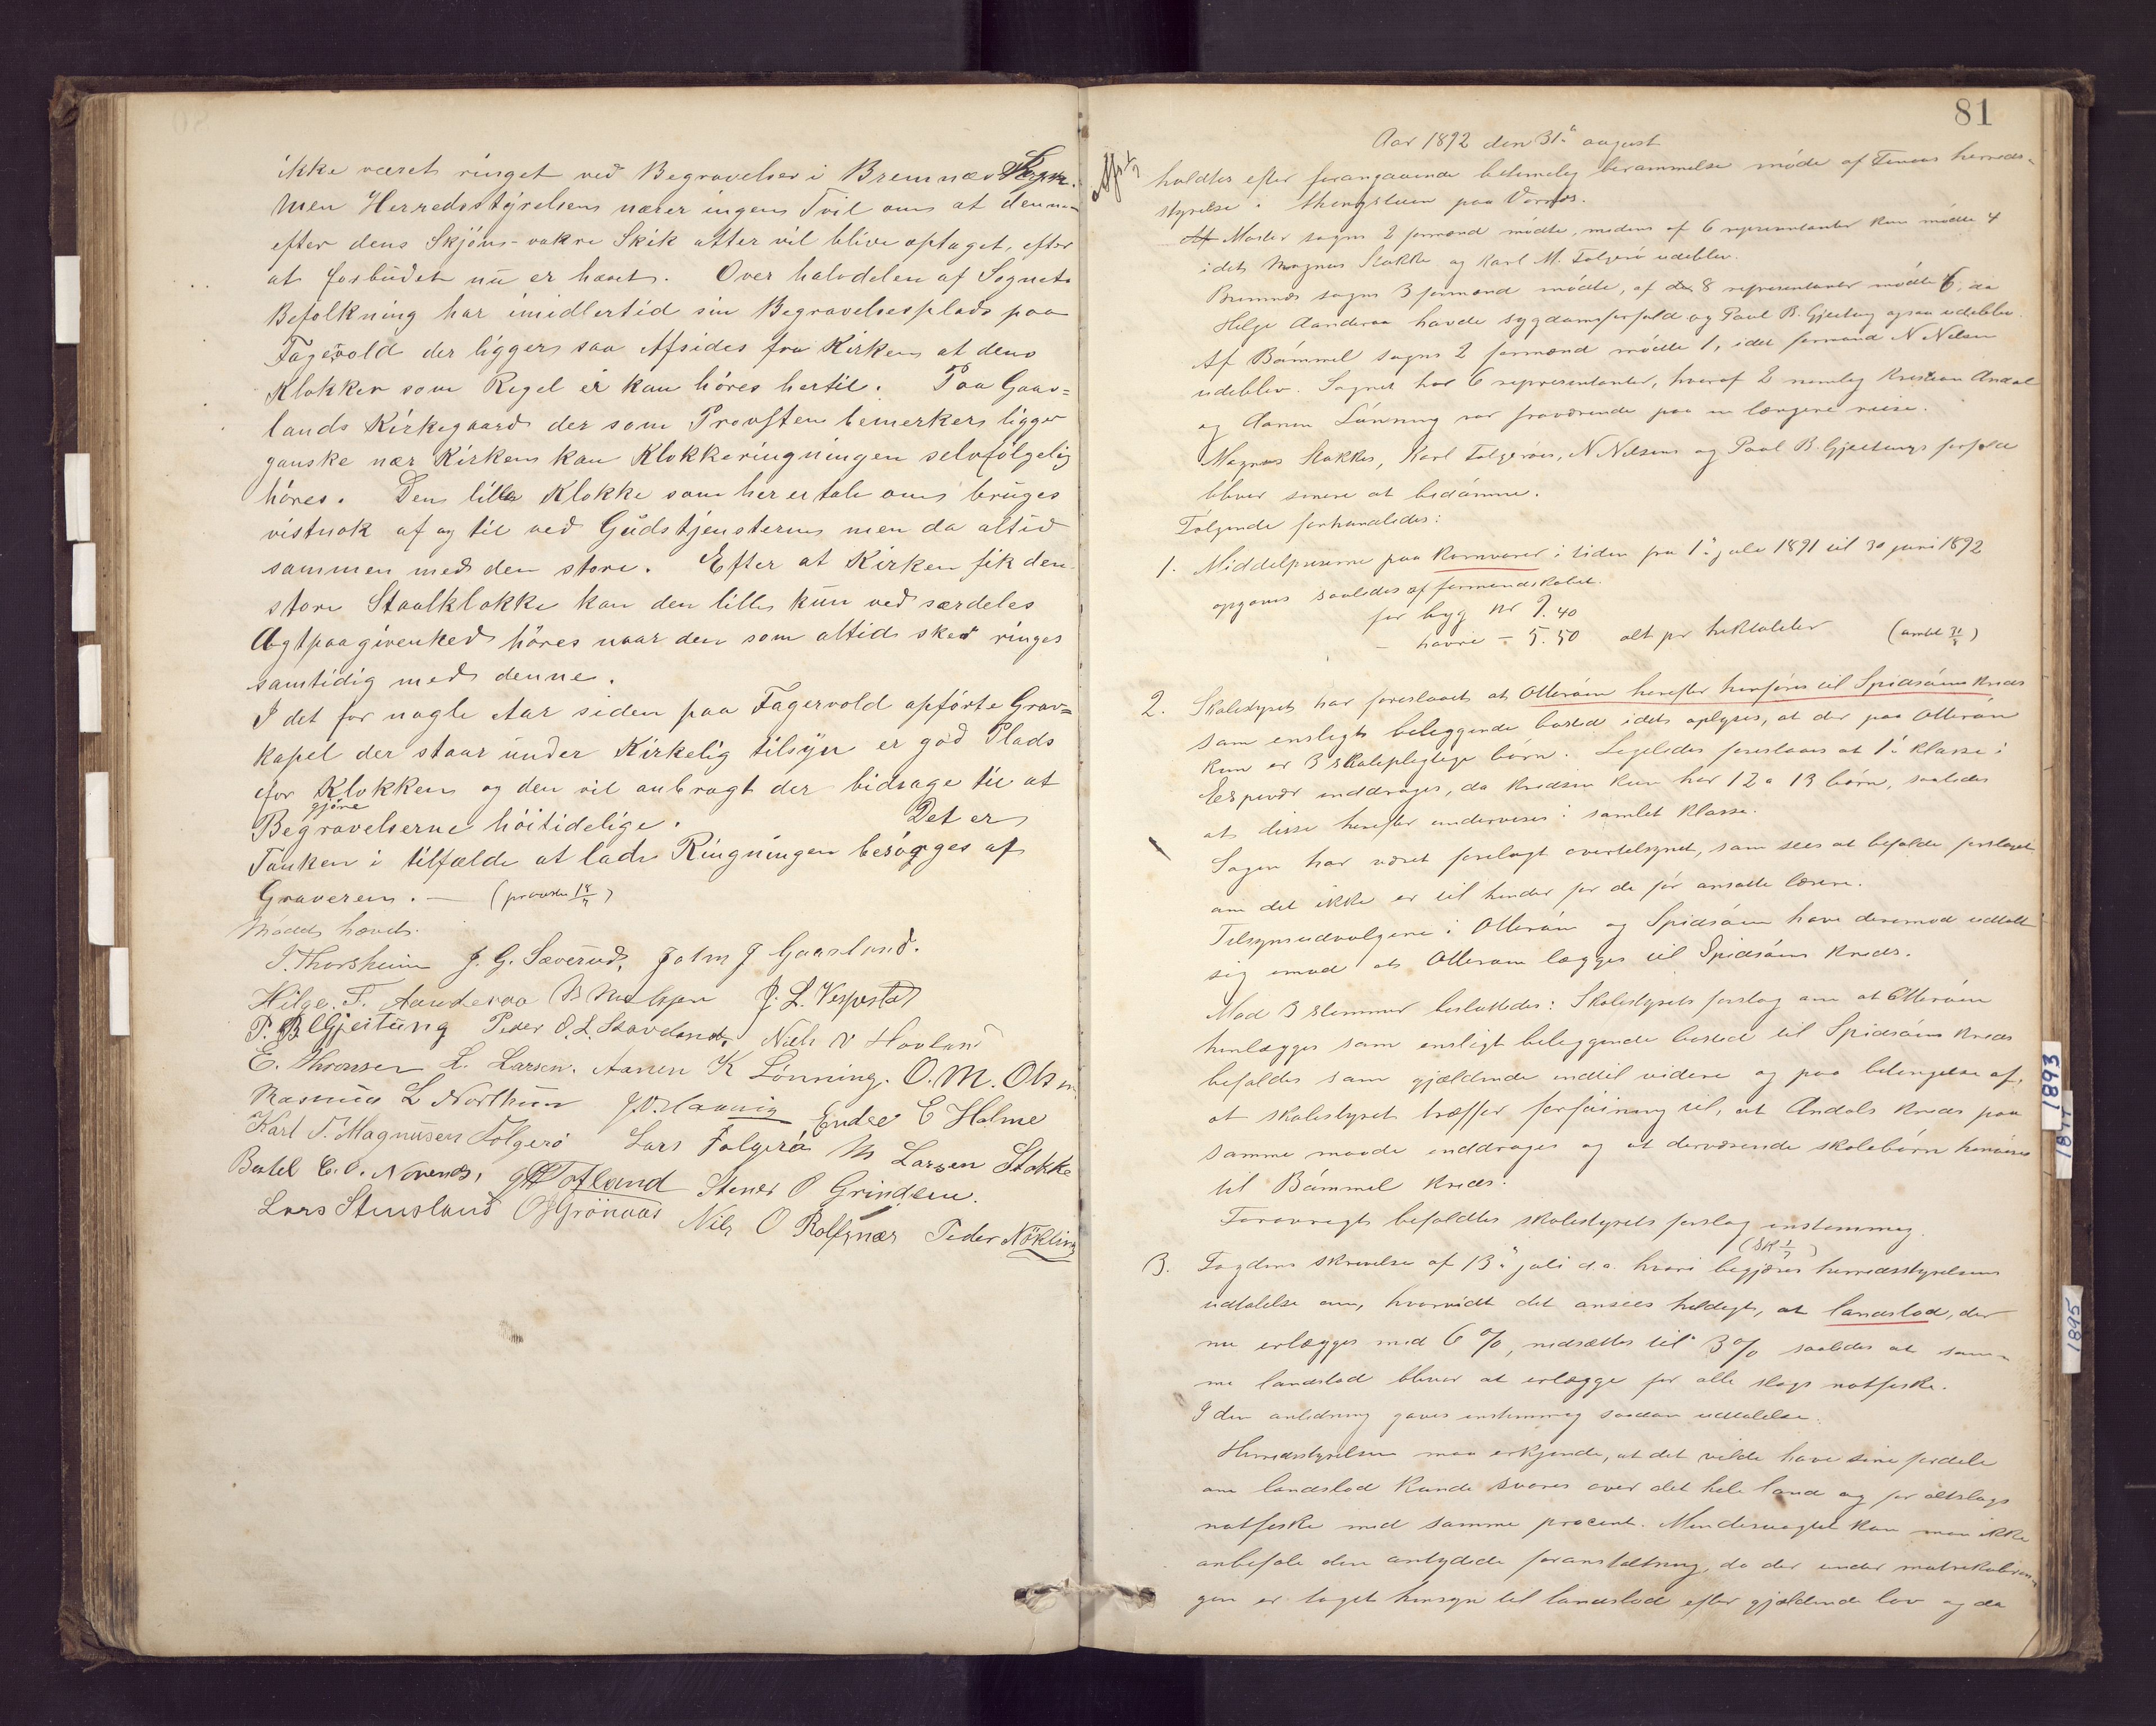 ikke været ringet ved Begravelser i Bremnæs Sogn.
Men Herredsstyrelsen nærer ingen Tvil om at denne
efter dens Skjøn vakre Skik atter vil blive optaget, efter
at forbudet nu er hævet. Over halvdelen af Sognets
Befolkning har imidlertid sin Begravelsesplads paa
Fagervold der ligger saa Afsides fra Kirken at dens
Klokker som Regel ei kan høres hertil. Paa Gaas-
lands Kirkegaard der som Provsten bemerker ligger
ganske nær Kirken kan Klokkeringningen selvfølgelig
høres. Den lille Klokke som her er tale om bruges
vistnok af og til ved Gudstjensterne men da altid
sammen med den store. Efter at Kirken fik den
store Staalklokke kan den lille kun ved særdeles
Agtpaagivenhed høres naar den som altid sker ringes
samtidig med denne.
I det for nogle Aar siden paa Fagervold opførte Grav-
kapel der staar under Kirkelig tilsyn er god Plads
for Klokken og den vil anbragt der bidrage til at
gjøre
Begravelserne høitidelige. Det er
Tanken i tilfælde at lade Ringningen besørges af
Graveren. — (provsten 18/7)
Mødet hævet.
T. Thorsheim J. G. Sæverud, John J Gaasland.
Helge. T. Aanderaa N Nielsen J. L. Vespestad
P. B. Gjeitung Peder O. L. Skovland, Nils N Hovland
E. Thronsen L. Larsen. Aanen K Lønning. O. M. Olsen
Rasmus L Northun Endre E Holme
Karl T. Magnusen Folgerø Lars Folgerø M Larsen Stokke
Bertel E. O. Novenes, Totland Stener O Grindem.
Lars Stensland O Grönaas Nils O Rolfsnæs Peder Nökling
81
Aar 1892 den 31te august
holdtes efter forangaaende betimelig berammelse møde af Finaas herreds-
styrelse i thingstuen paa Vornæs.
Af Moster sogns 2 formænd mødte, medens af 6 representanter kun mødte 4
idet Magnus Stokke og Karl M. Folgerø udeblev.
Bremnæs sogns 3 formænd mødte, af de 8 representanter mødte 6, da
Helge Aanderaa havde sygdomsforfald og Paul B. Gjeitung ogsaa udeblev.
Af Bømmel sogns 2 formænd mødte 1, idet formand N Nilsen
udeblev. Sognet har 6 representanter, hvoraf 2 nemlig Kristian Andal
og Aanen Lønning var fraværende paa en længere reise.
Magnus Stokkes, Karl Folgerøes, N Nilsens og Paul B. Gjeitungs forfald
bliver senere at bedømme.
Følgende forhandledes:
1. Middelpriserne paa Kornvarer i tiden fra 1te juli 1891 til 30 juni 1892
opgaves saaledes af formandskabet.
for byg kr 9.40
- havre - 5.50 alt pr hektoliter (amtet 31/8)
2. Skolestyret har foreslaaet at Otterøen herefter henføres til Spidsøens Kreds
som ensligt beliggende bosted idet oplyses, at der paa Otterøen
kun er 3 skolepligtige børn. Ligeledes foreslaaes at 1te klasse i
Espevær inddrages, da kredsen kun har 12 a 13 børn, saaledes
at disse herefter undervises i samlet klasse.
Sagen har været forelagt overtilsynet, som sees at befølde forslaget
om det ikke er til hinder for de før ansatte lærere.
Tilsynsudvalgene i Otterøen og Spidsøen have derimod udtalt
sig imod at Otterøen lægges til Spidsøens Kreds.
Mod 3 stemmer besluttedes: Skolestyrets forslag om at Otterøen
henlægges som ensligt beliggende bosted til Spidsøens Kreds
befoldes som gjældende indtil videre og paa betingelse af,
at skolestyret træffer forføining til, at Andals Kreds paa
samme maade inddrages og at derværende skolebørn henvises
til Bømmel Kreds.
Forøvrigt befoldtes skolestyrets forslag enstemmig.
(SK 1/9)
3. Fogdens skrivelse af 13de juli d.a. hvori begjæres herredsstyrelsens
udtalelse om, hvorvidt det ansees heldigt, at landslod, der
nu erlægges med 6 %, nedsættes til 3 % saaledes at sam-
me landslod bliver at erlægge for alle slags notfiske.
I den anledning gaves enstemmig saadan udtalelse.
Herredsstyrelsen maa erkjende, at det vilde have sine fordele
om landslod kunde svares over det hele land og for altslags
notfiske med samme procent. Mindesmagtet kan man ikke
anbefale den antydede foranstaltning, da der under matrikulerin-
gen er taget hensyn til landslod efter gjældende lov og da
1893
1894
1895